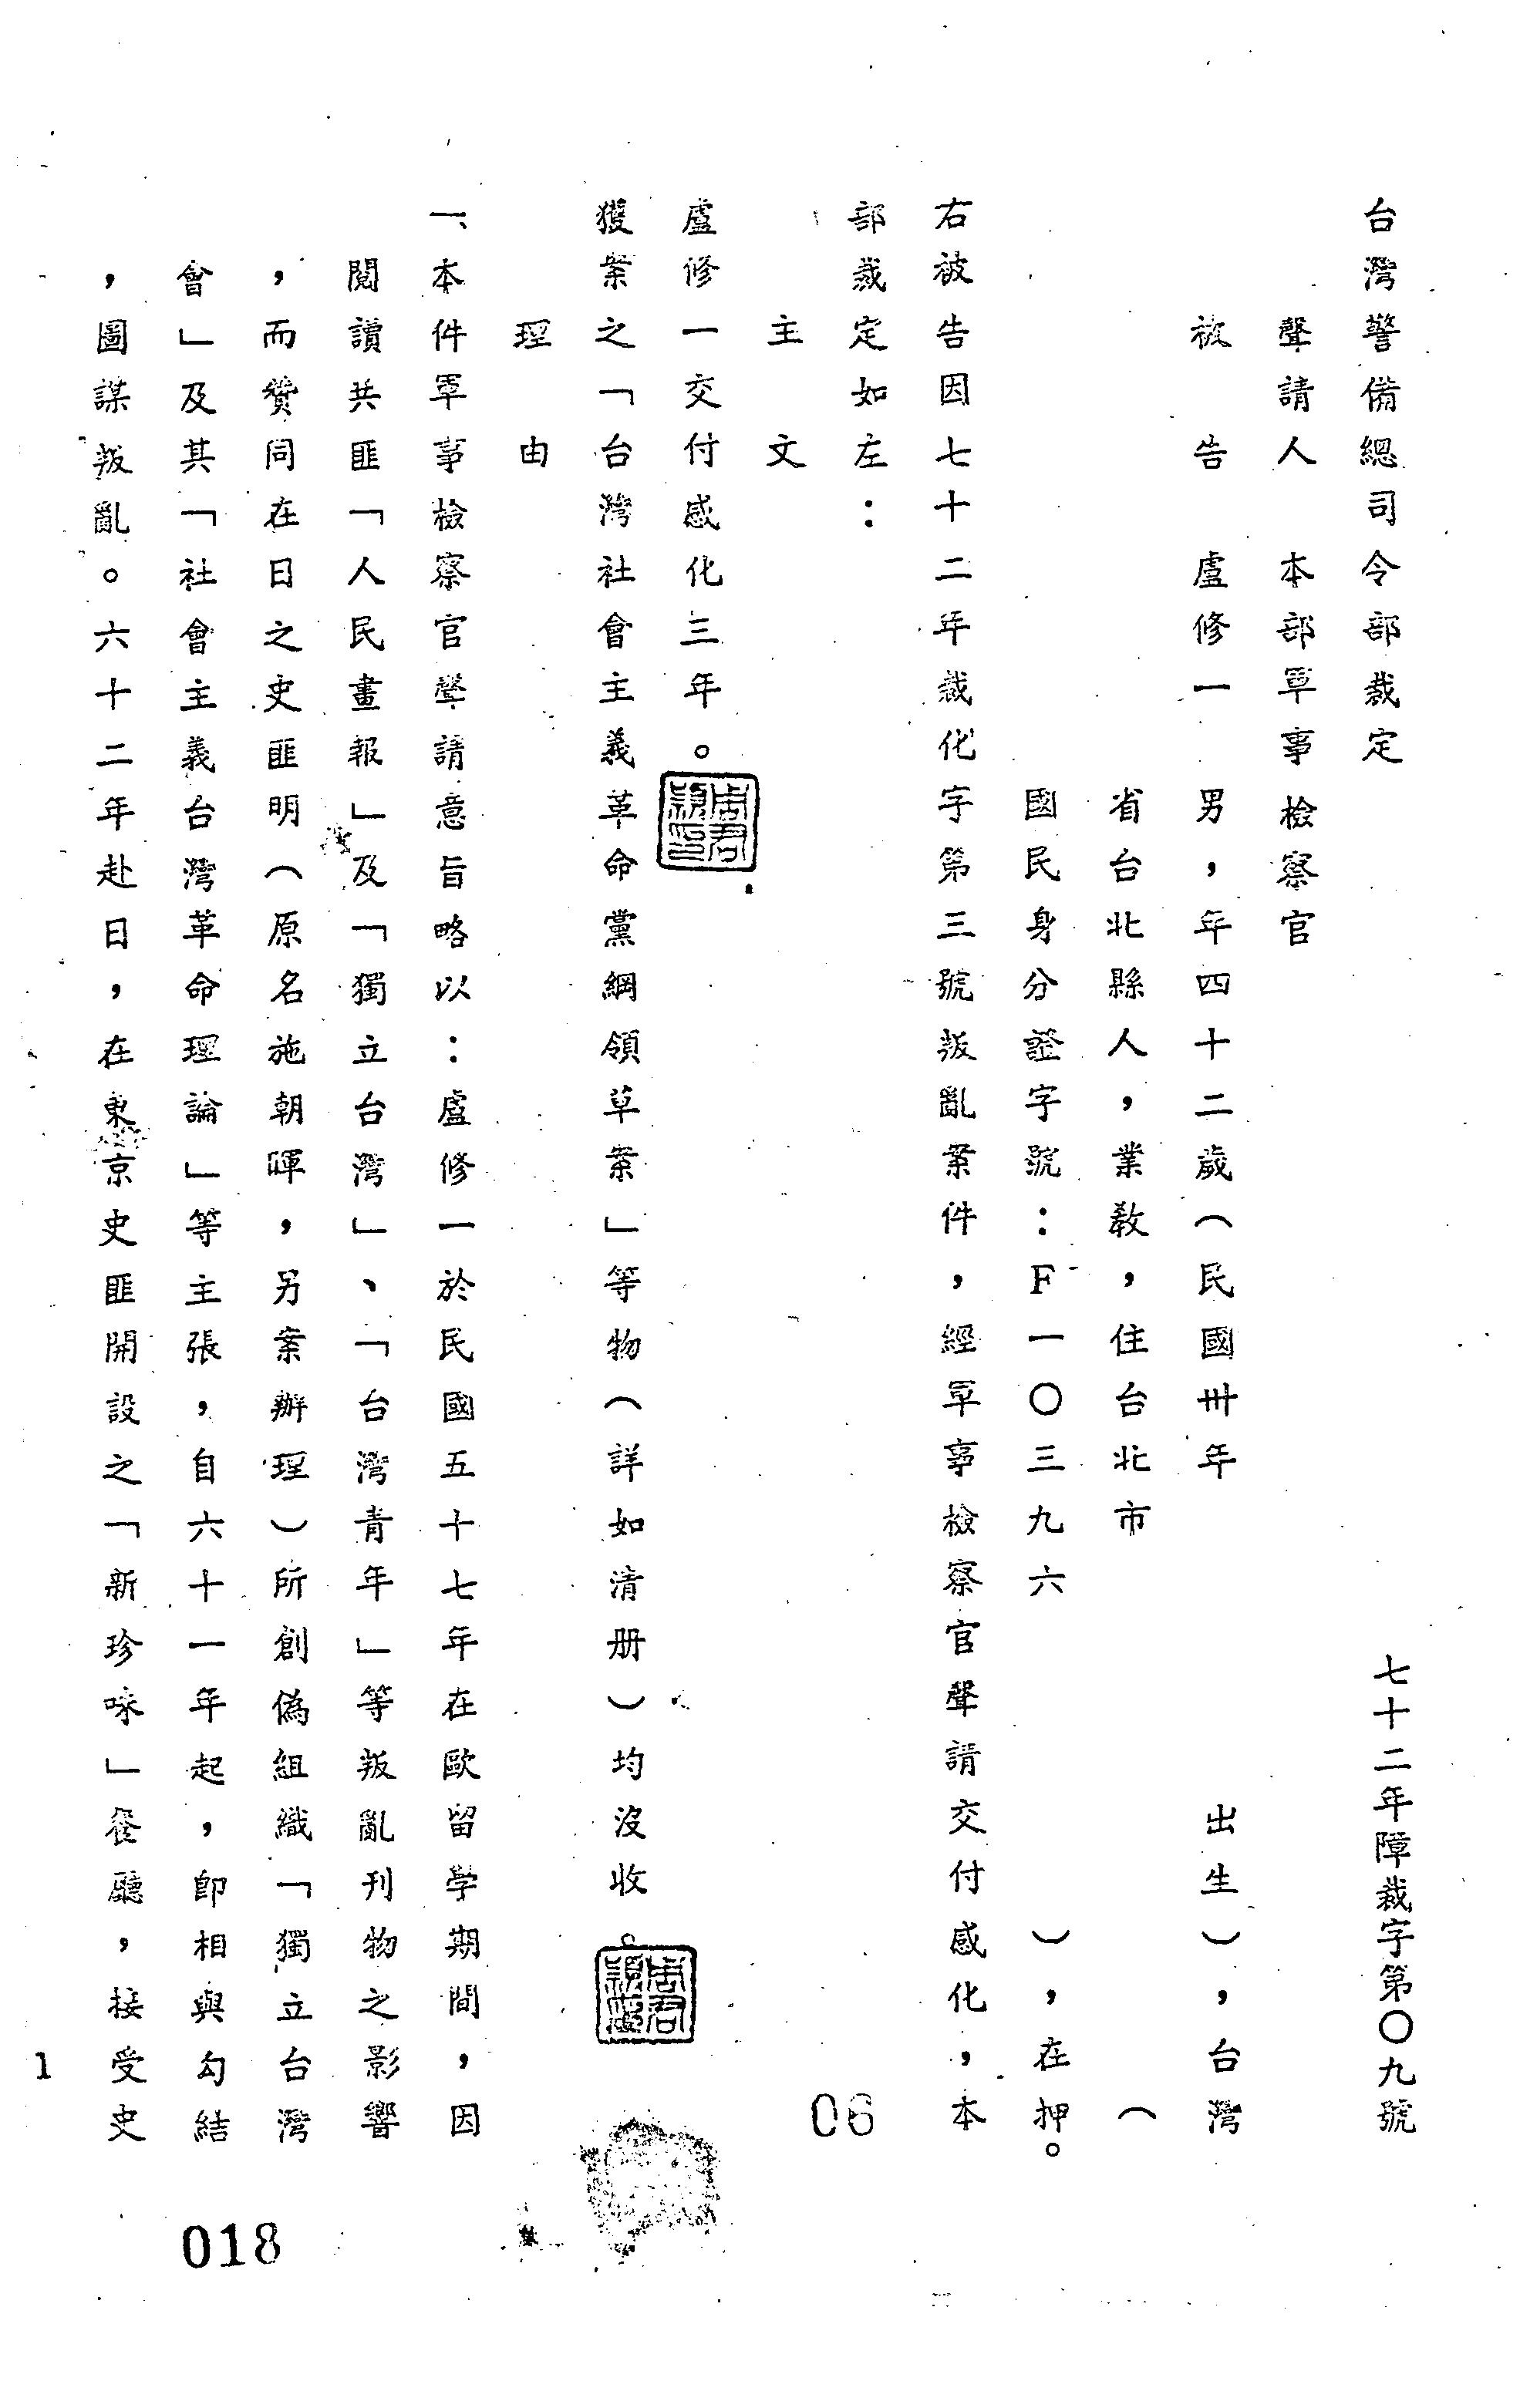 台灣警備總司令部裁定
七十二年障裁字第〇九號
聲請人 本部軍事檢察官
被告 盧修一 男，年四十二歲（民國卅年 出生），台灣
省台北縣人，業教，住台北市 （
國民身分證字號：F一〇三九六 ），在押。
右被告因七十二年裁化字第三號叛亂案件，經軍事檢察官聲請交付感化，本
部裁定如左：
主文
盧修一交付感化三年。
獲案之「台灣社會主義革命黨綱領草案」等物（詳如清册）均沒收。
理由
一、本件軍事檢察官聲請意旨略以：盧修一於民國五十七年在歐留學期間，因
閱讀共匪「人民畫報」及「獨立台灣」、「台灣青年」等叛亂刊物之影響
，而贊同在日之史匪明（原名施朝暉，另案辦理）所創偽組織「獨立台灣
會」及其「社會主義台灣革命理論」等主張，自六十一年起，即相與勾結
，圖謀叛亂。六十二年赴日，在東京史匪開設之「新珍味」餐廳，接受史
06
1
018